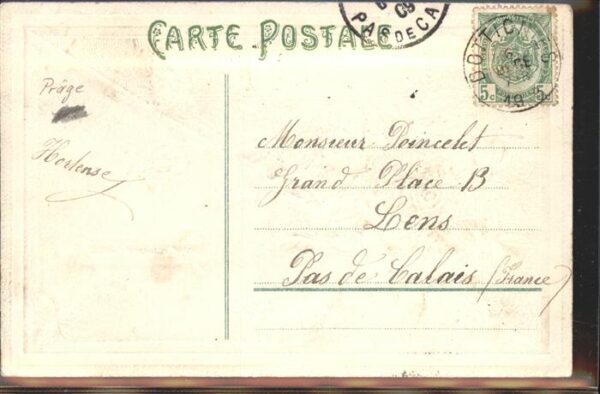 CARTE POSTALE
09
PAS DE CA
5c 5c
19
Präge
Hortense
Monsieur Poincelet
Grand Place 13
Lens
Pas de Calais (France)